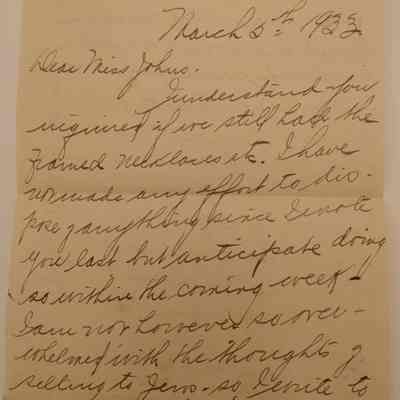 March 5th 1933
Dear Miss Johns.
I understand you
inquired if we still had the
framed necklaces etc. I have
not made any effort to dis-
pose of anything since I wrote
you last but anticipate doing
so within the coming week -
I am not however so over-
whelmed with the thoughts of
selling to Jews - so I write to